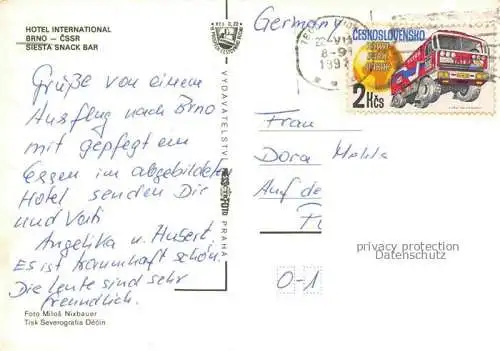 HOTEL INTERNATIONAL
BRNO – ČSSR
SIESTA SNACK BAR
Grüße von einem
Ausflug nach Brno
mit gepflegtem
Essen im abgebildeten
Hotel senden Dir
und Vati
Angelika u. Hubert.
Es ist traumhaft schön.
Die Leute sind sehr
freundlich.
Foto Miloš Nixbauer
Tisk Severografia Děčín
VYDAVATELSTVÍ
PRAHA
Germany
ČESKOSLOVENSKO
2 Kčs
Frau
Dora
Auf de
privacy protection
Datenschutz
0-1